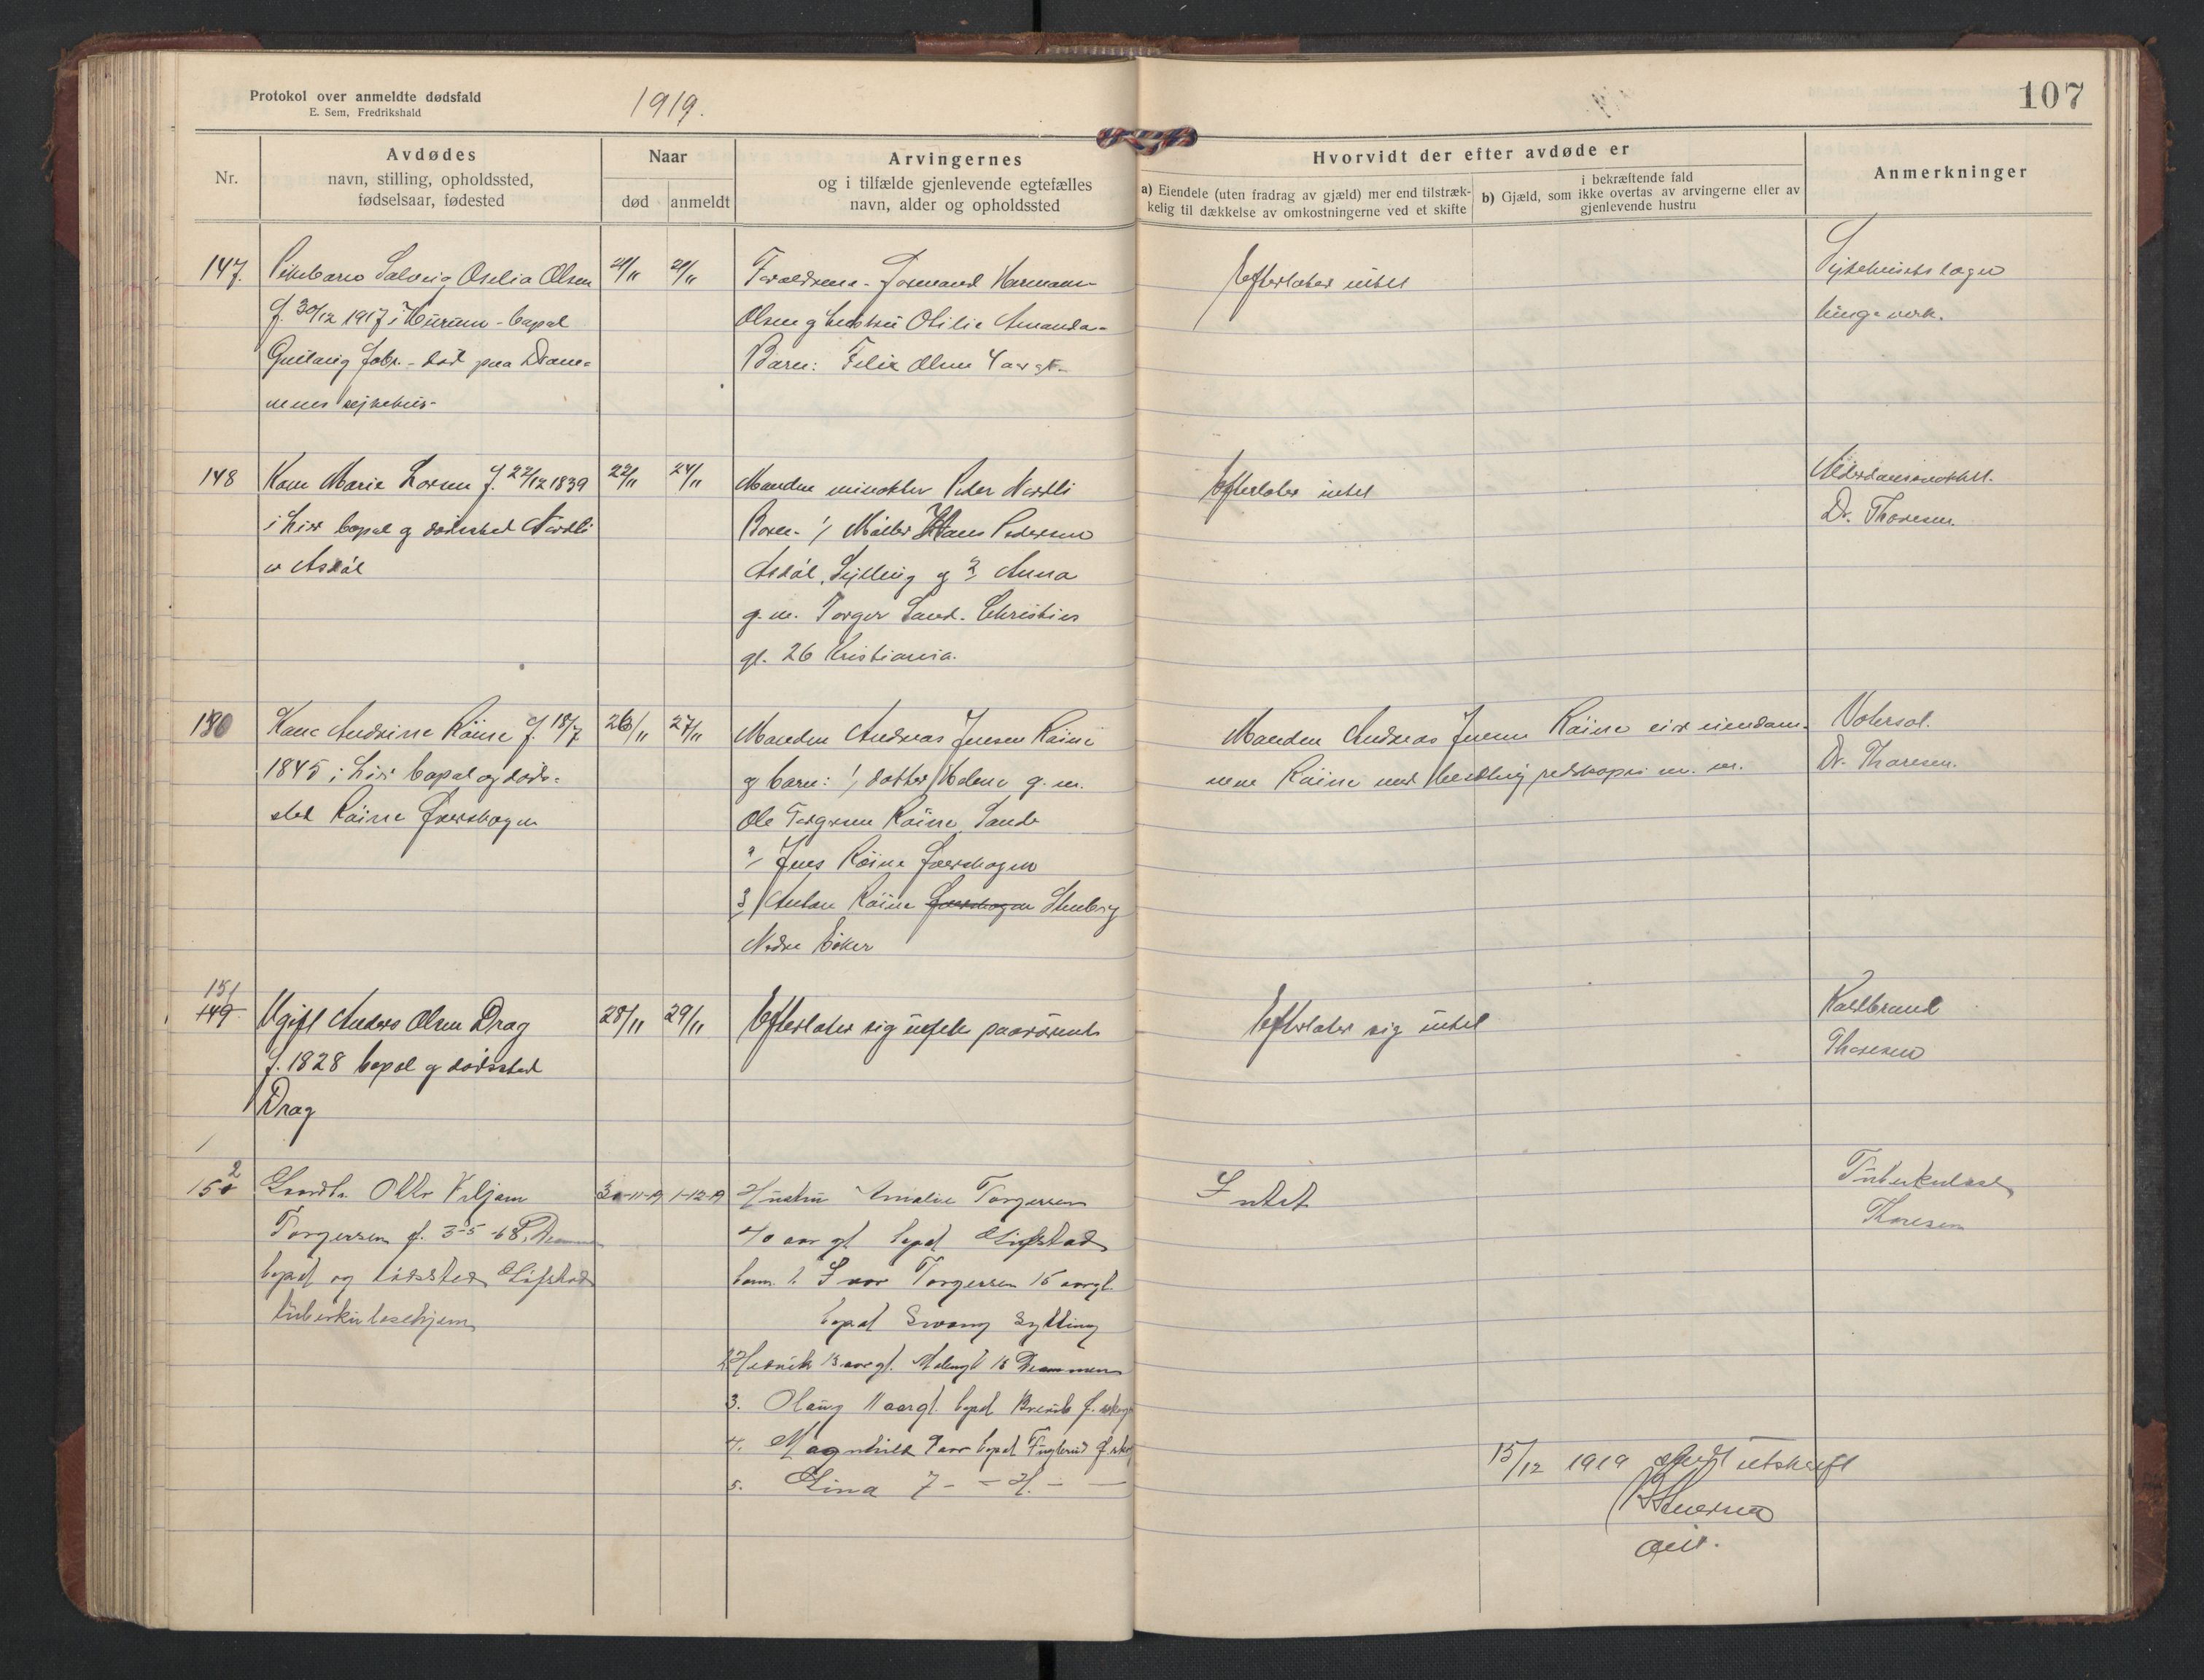 Protokol over anmeldte dødsfald
E. Sem, Fredrikshald
1919.
107
Nr.
Avdødes
navn, stilling, opholdssted,
fødselsaar, fødested
Naar
død
anmeldt
Arvingernes
og i tilfælde gjenlevende egtefælles
navn, alder og opholdssted
Hvorvidt der efter avdøde er
a) Eiendele (uten fradrag av gjæld) mer end tilstræk-
kelig til dækkelse av omkostningerne ved et skifte
i bekræftende fald
b) Gjæld, som ikke overtas av arvingerne eller av
gjenlevende hustru
Anmerkninger
147. Pikebarn Solveig Otelia Olsen
f. 30/12 1917 i Hurum - bopæl
fabr. - död paa Dram-
mens sykehus-
21/11
Forældrene - Formand Hermann
Olsen g hustru Otilie Amanda-
Barn: Felix Olsen 4 aar gl.
Efterlater intet
148 Kone Marie Larsen f. 22/12 1839
i Lier bopæl g dödssted Nordli
u Asdöl
22/11
24/11
Manden Peter Nordli
Barn- 1/ Möller Hans Pedersen
Asdöl, Sylling g 2 Anna
g. m. Torger Sand. Christies
gt. 26 Kristiania.
Efterlater intet
Dr. Thoresen.
150 Kone Andrine Röine f. 18/7
1845 i Lier bopæl og döds-
sted Röine Överskogen
26/11
27/11
Manden Andreas Jensen Röine
g barn: 1/ datter Helene g. m.
Ole Röine Sande
2/ Jens Röine Överskogen
3/ Anton Röine Överskogen Stenberg
Nedre Eiker
Manden Andreas Jensen Röine eier eiendom-
mene Röine med besetning, redskaper m. m.
Dr. Thoresen.
151
149
Ugift Anders Olsen Drag
f. 1828 bopæl g dödssted
Drag
28/11
29/11
Efterlater sig ingen paarörende
Efterlater sig intet
Koldbrand
Thoresen
152
Otto Viljam
Torgersen f. 3-5-68, Drammen
bopæl og dödssted Lifstad
tuberkulosehjem
30-11-19
1-12-19
Hustru Amalie Torgersen
40 aar gl bopæl Lifstad
barn 1. Ivar Torgersen 15 aar gl.
bopæl Svang Sylling
2. Henrik 13 aar gl. 18 Drammen
3. Olaug 11 aar gl. bopæl
4. Magnhild 9 aar bopæl Fuglerud
5. Lina 7 - -
Intet
Tuberkulose
Thoresen
15/12 1919 utskrift